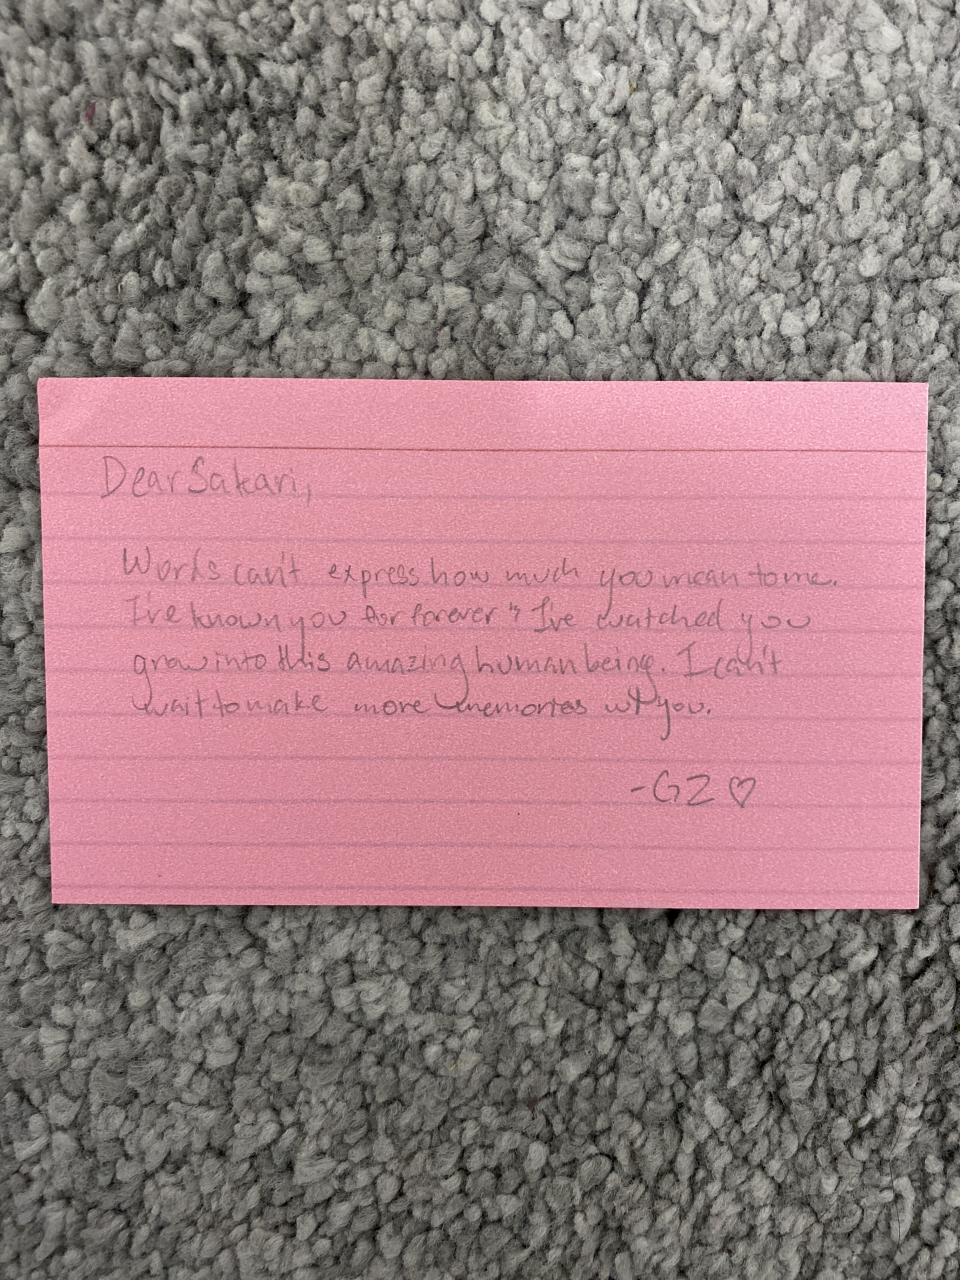 Dear Sakari,
Words can't express how much you mean to me.
I've known you for forever & I've watched you
grow into this amazing human being. I can't
wait to make more memories w/ you.
-GZ ♡